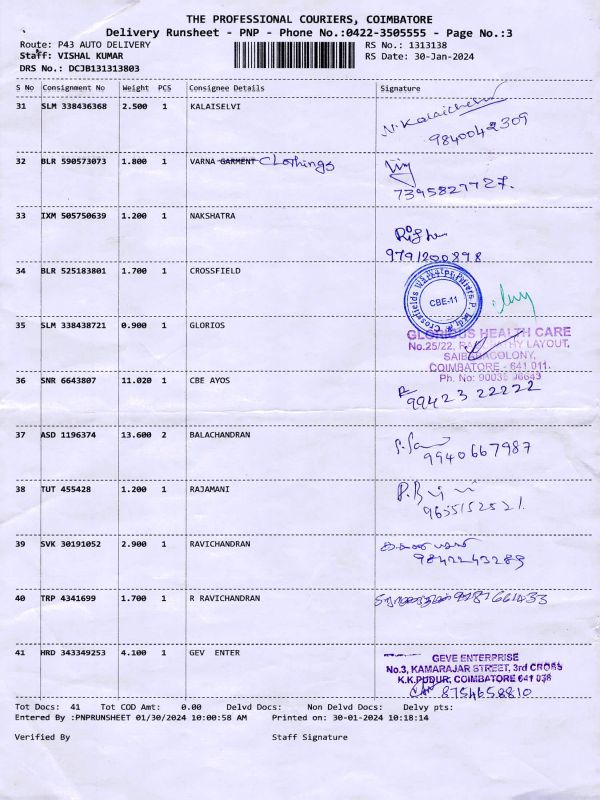 THE PROFESSIONAL COURIERS, COIMBATORE
Delivery Runsheet - PNP - Phone No.:0422-3505555 - Page No.:3
Route: P43 AUTO DELIVERY RS No.: 1313138
Staff: VISHAL KUMAR RS Date: 30-Jan-2024
DRS No.: DCJB131313803
S No Consignment No Weight PCS Consignee Details Signature
31 SLM 338436368 2.500 1 KALAISELVI N. Kalaichelvi
9840042309
32 BLR 590573073 1.800 1 VARNA GARMENT Clothings
7395827727.
33 IXM 505750639 1.200 1 NAKSHATRA
9791200898
34 BLR 525183801 1.700 1 CROSSFIELD
CBE-11
35 SLM 338438721 0.900 1 GLORIOS GLORIOUS HEALTH CARE
No.25/22, LAYOUT,
SAIBABACOLONY,
COIMBATORE - 641 011.
Ph. No: 90035 96643
36 SNR 6643807 11.020 1 CBE AYOS
99423 22222
37 ASD 1196374 13.600 2 BALACHANDRAN
9940667987
38 TUT 455428 1.200 1 RAJAMANI
9655152521
39 SVK 30191052 2.900 1 RAVICHANDRAN
9842243289
40 TRP 4341699 1.700 1 R RAVICHANDRAN
41 HRD 343349253 4.100 1 GEV ENTER
GEVE ENTERPRISE
No.3, KAMARAJAR STREET, 3rd CROSS
K.K.PUDUR, COIMBATORE 641 038
8754658810
Tot Docs: 41 Tot COD Amt: 0.00 Delvd Docs: Non Delvd Docs: Delvy pts:
Entered By :PNPRUNSHEET 01/30/2024 10:00:58 AM Printed on: 30-01-2024 10:18:14
Verified By Staff Signature